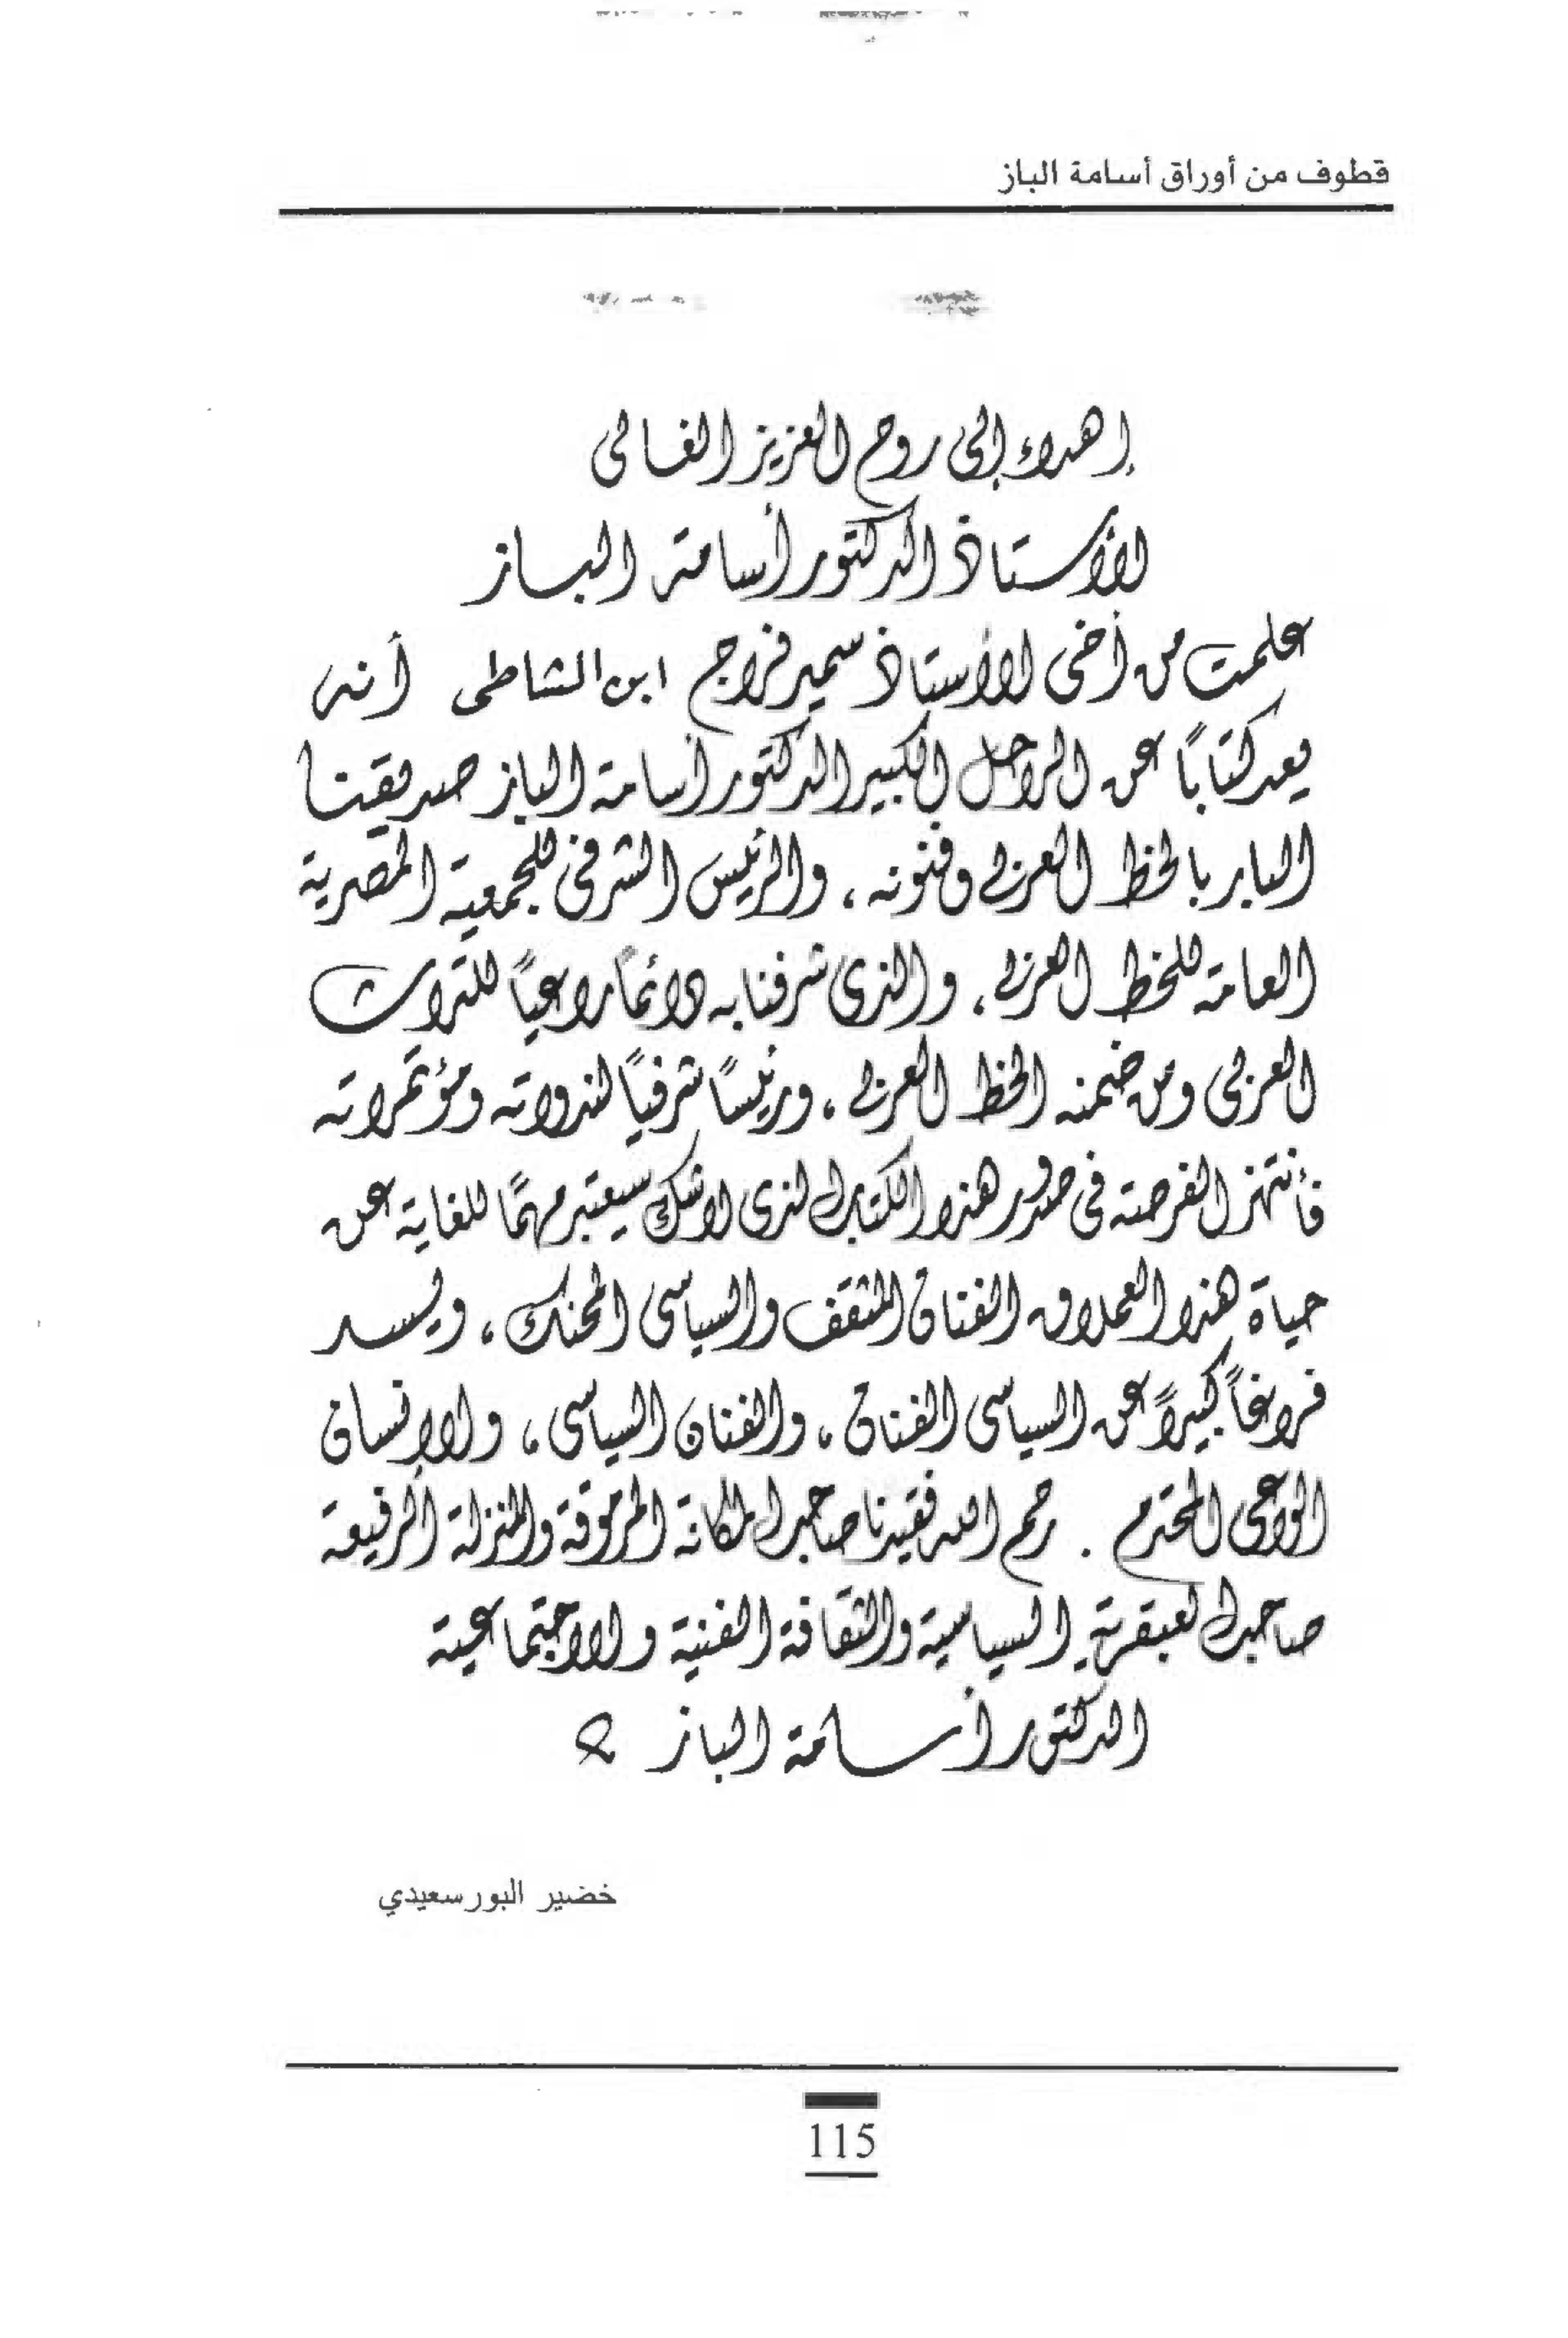 قطوف من أوراق أسامة الباز
إهداء إلى روح العزيز الغالى
الأستاذ الدكتور أسامة الباز
علمت من أخى الأستاذ سمير فراج ابن الشاطى أنه
يعد كتاباً عن الراحل الكبير الدكتور أسامة الباز صديقنا
البار بالخط العربى وفنونه ، والرئيس الشرفى للجمعية المصرية
العامة للخط العربى ، والذى شرفنا به دائماً راعياً للتراث
العربى ومن ضمنه الخط العربى ، ورئيساً شرفياً لندواته ومؤتمراته
فأنتهز الفرصة فى صدور هذا الكتاب الذى لاشك سيعتبر مهمًا للغاية عن
حياة هذا العملاق الفنان المثقف والسياسى المحنك ، وليسد
فراغاً كبيراً عن السياسى الفنان ، والفنان السياسى ، والإنسان
الواعى المحترم . رحم الله فقيدنا صاحب المكانة المرموقة والمنزلة الرفيعة
صاحب العبقرية السياسية والثقافة الفنية والاجتماعية
الدكتور أسامة الباز
خضير البورسعيدي
115